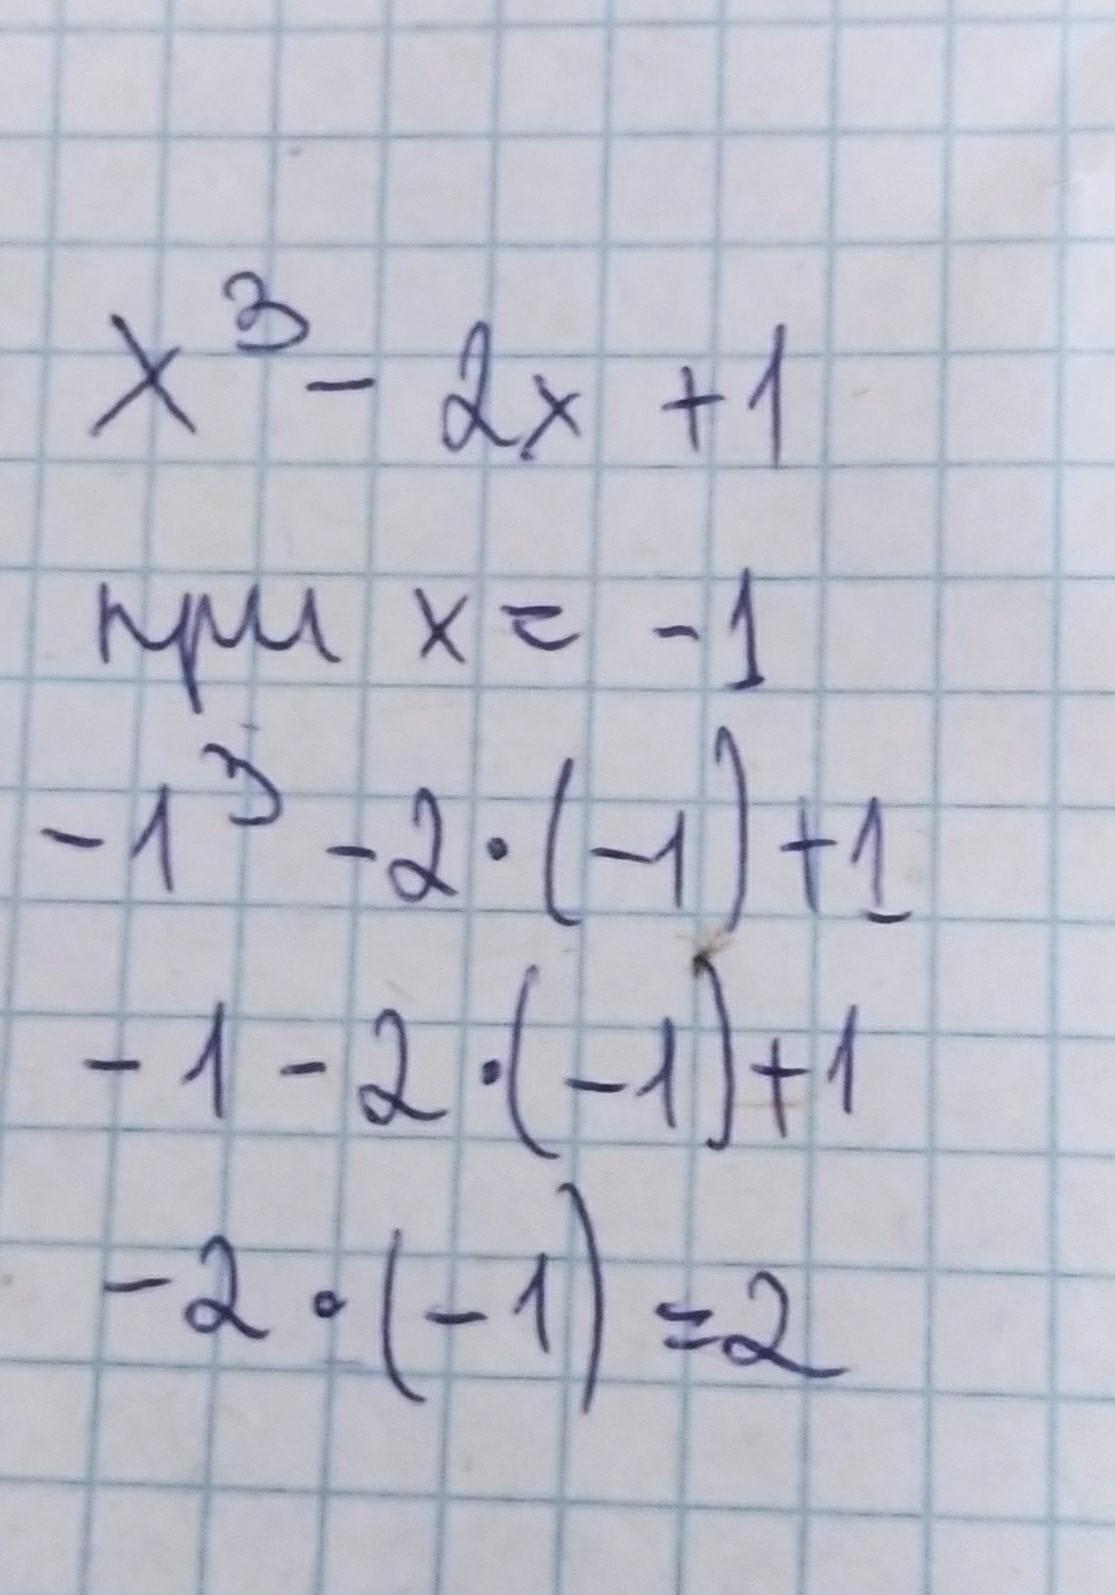 x³ - 2x + 1
при x = -1
-1³ - 2 · (-1) + 1
-1 - 2 · (-1) + 1
-2 · (-1) = 2